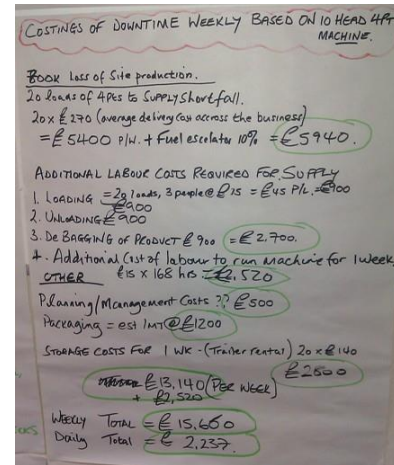 COSTINGS OF DOWNTIME WEEKLY BASED ON 10 HEAD 4PT
MACHINE.
Loss of Site production.
20 loads of 4Pts to Supply Shortfall.
20 x £270 (average delivery cost accross the business)
= £5400 P/W. + Fuel escelator 10% = £5940.
ADDITIONAL LABOUR COSTS REQUIRED FOR SUPPLY
1. LOADING = 20 loads, 3 people @ £15 = £45 P/L. = £900
£900
2. UNLOADING £900
3. DE BAGGING OF PRODUCT £900 = £2,700.
4. Additional Cost of labour to run machine for 1 week,
OTHER £15 x 168 hrs = £2,520
Planning/Management Costs ?? £500
Packaging = est 1MT @ £1200
STORAGE COSTS FOR 1 WK - (Trailer rental) 20 x £140
£2800
£13,140 (PER WEEK)
+ £2,520
WEEKLY TOTAL = £15,660
Daily Total = £2,237.